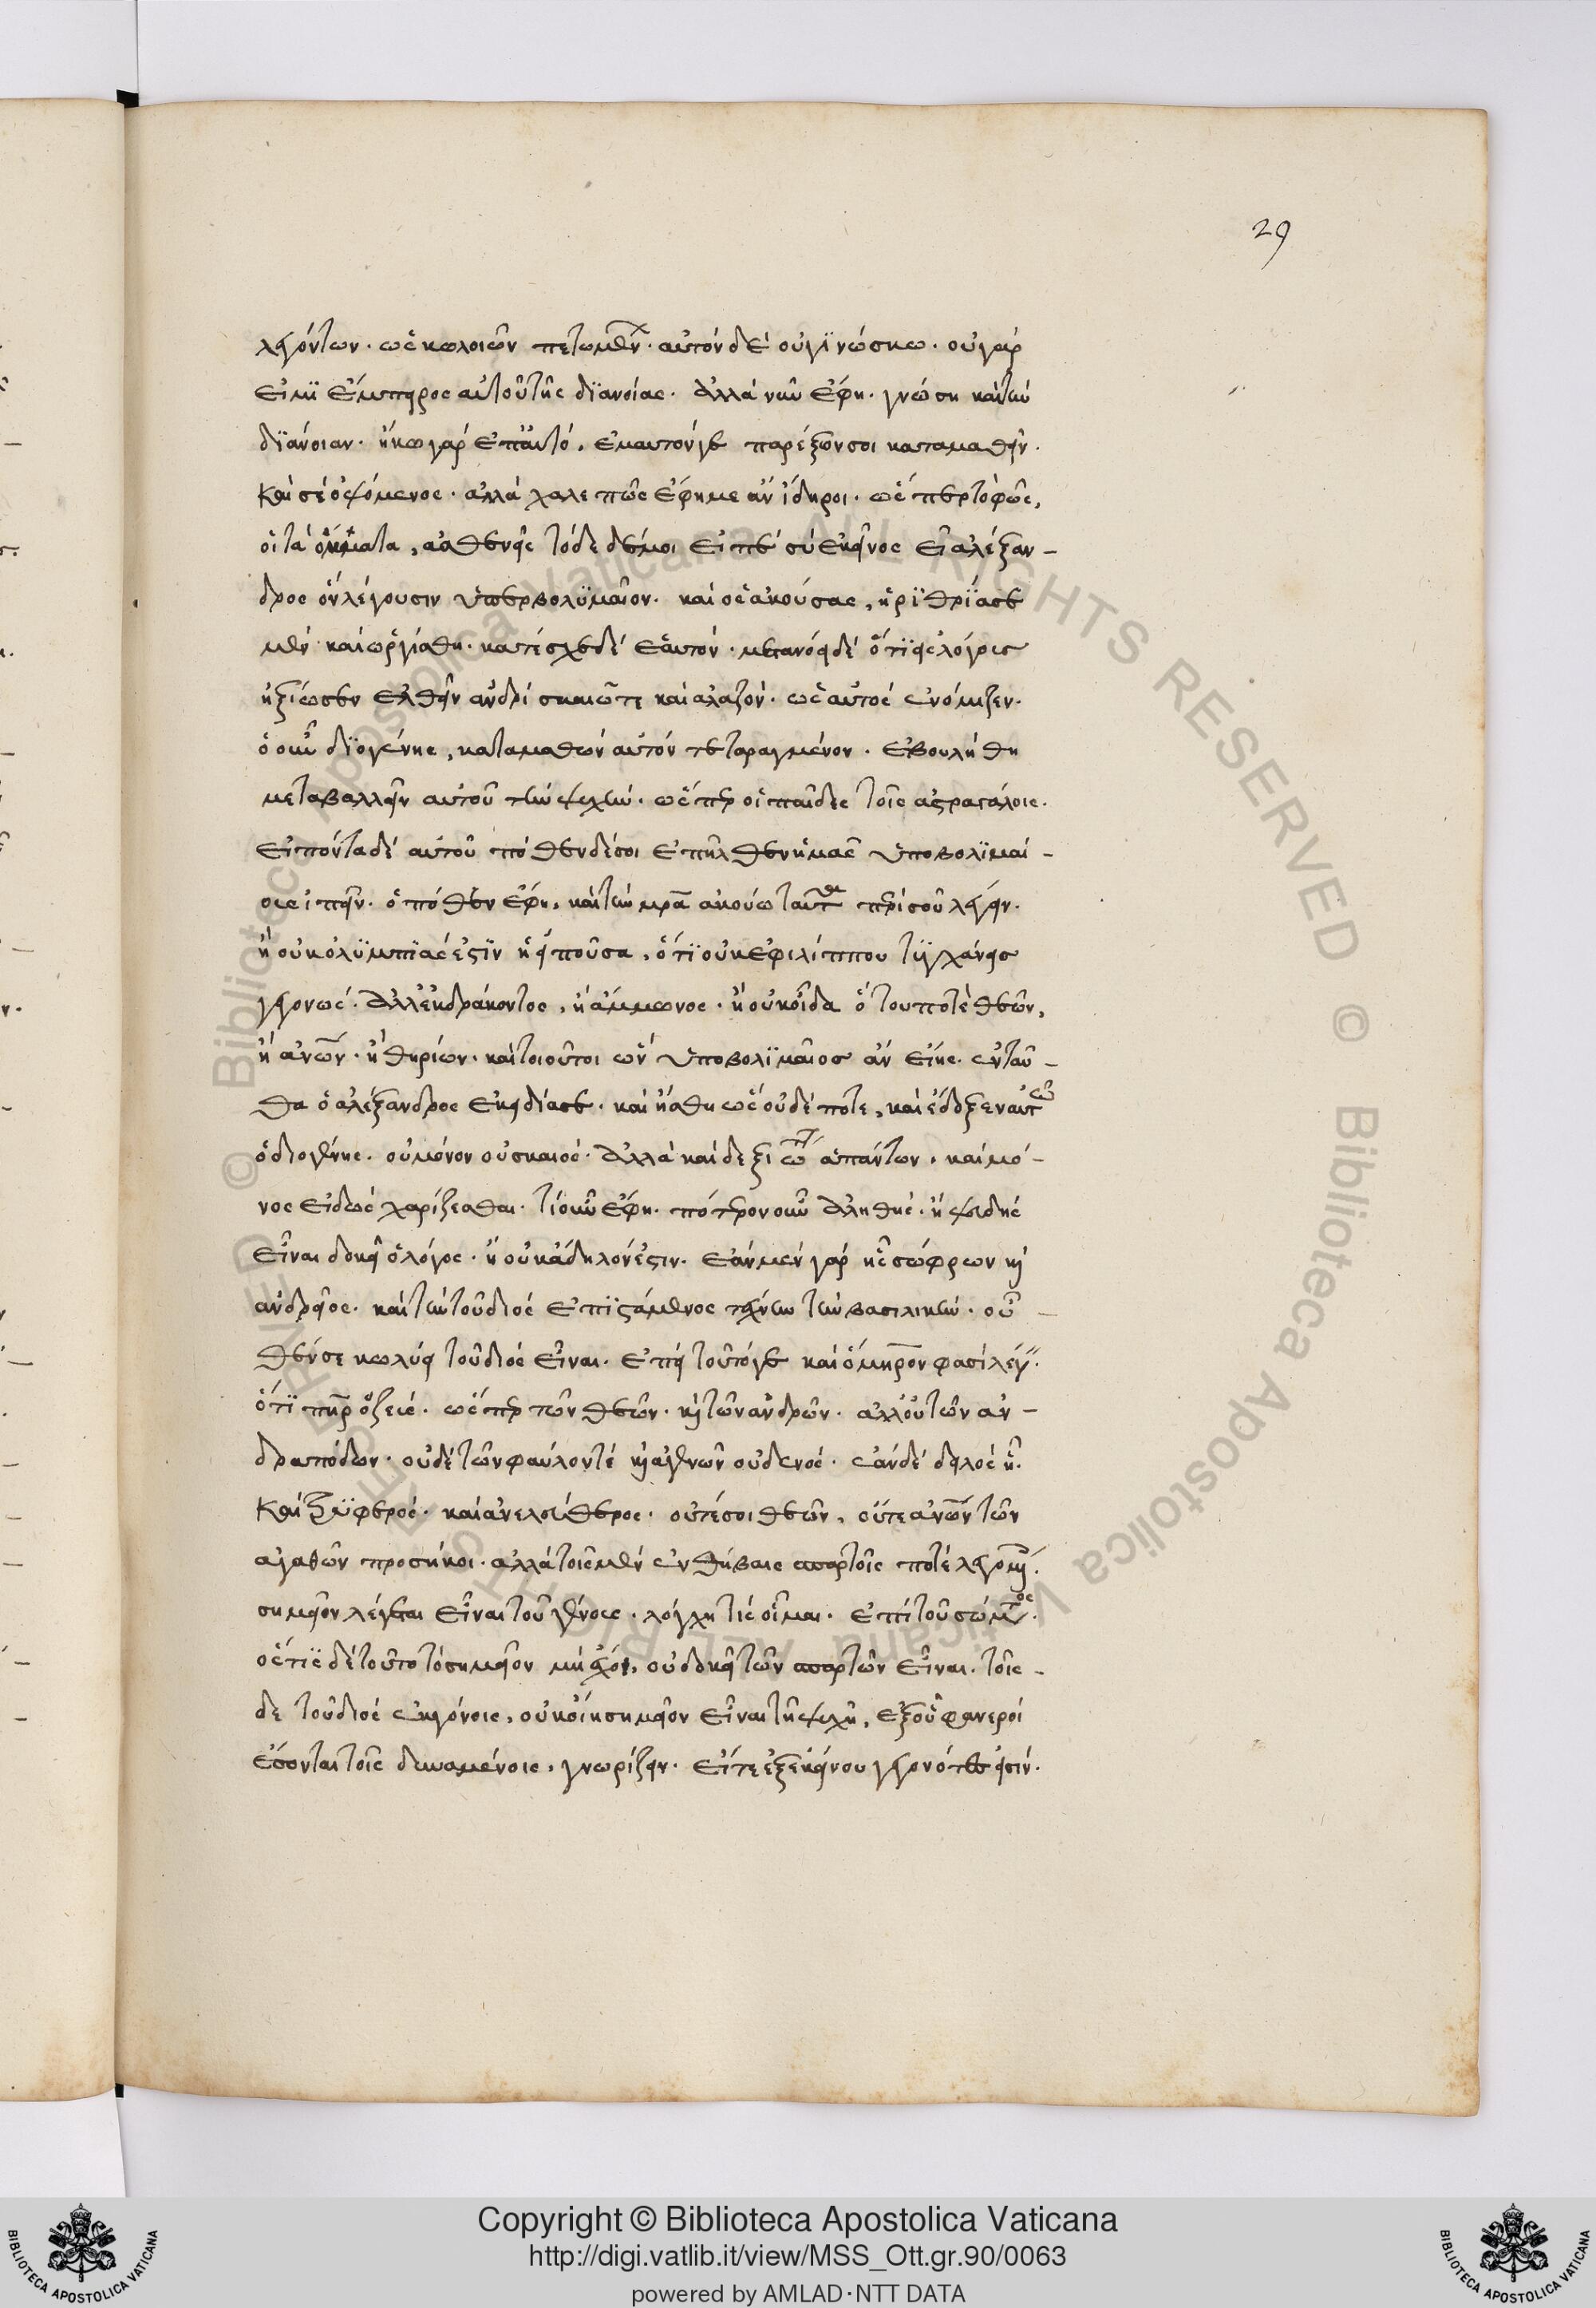 λεγόντων. ὡς κολοιῶν πετομένων. αὐτὸν δὲ οὐ γϊνώσκω. οὐ γάρ
εἰμϊ ἔμπειρος αὐτοῦ τῆς δϊανοίας. ἀλλὰ νῦν ἔφη. γνώση καὶ τὴν
δϊάνοιαν. ἥκω γὰρ ἐπ' αὐτό. ἐμαυτόν γε παρέξων σοι καταμαθεῖν.
καὶ σὲ ὀψόμενος. ἀλλὰ χαλεπῶς ἔφη με ἂν. ὥσπερ τὸ φῶς,
οἱ τὰ ὄμματα, ἀσθενεῖς τόδε δέ μοι εἰπέ σὺ ἐκεῖνος εἶ ἀλέξαν-
δρος ὃν λέγουσιν ὑπερβολϋμαῖον. καὶ ὃς ἀκούσας, ἠρϋθρΐασε
μὲν καὶ ὠργίσθη. κατέσχε δὲ ἑαυτόν. μετανόει δὲ ὅτϊ εἰς λόγους
ἠξίωσεν ἐλθεῖν ἀνδρὶ σκαιῶ τε καὶ ἀλαζόνι. ὡς αὐτὸς ἐνόμιζεν.
ὁ οὖν δϊογένης, καταμαθὼν αὐτὸν τεταραγμένον. ἐβουλήθη
μεταβαλλεῖν αὐτοῦ τὴν ψυχὴν. ὥσπερ οἱ παῖδες τοῖς ἀστραγάλοις.
εἰπόντα δὲ αὐτοῦ πόθεν δέ σοι ἐπῆλθεν ἡμᾶς ὑποβολϊμαί-
ους εἰπεῖν. ὁπόθεν ἔφη, καὶ τὴν μητέρα ἀκούω ταῦτα περὶ σοῦ λέγειν.
ἢ οὐκ ὀλϋμπϊάς ἐστϊν ἡ εἰποῦσα, ὅτϊ οὐκ ἐκ φιλίππου τϋγχάνεις
γεγονώς. ἀλλ' ἐκ δράκοντος, ἢ ἄμμωνος. ἢ οὐκ οἶδα ὅτου ποτὲ θεῶν,
ἢ ἀνθρώπων. ἢ θηρίων. καίτοι οὕτοι ὢν ὑποβολϊμαῖος ἂν εἴης. ἐνταῦ-
θα ὁ ἀλέξανδρος ἐμειδίασε. καὶ ἥσθη ὡς οὐδέποτε, καὶ ἔδοξεν αὐτῶ
ὁ διογένης. οὐ μόνον οὐ σκαιός. ἀλλὰ καὶ δεξιώτατος ἁπάντων. καὶ μό-
νος εἰδὼς χαρίζεσθαι. τί οὖν ἔφη. πότερον οὖν ἀληθὴς. ἢ ψευδὴς
εἶναι δοκεῖ ὁ λόγος. ἢ οὐκ ἄδηλόν ἐστιν. ἐὰν μὲν γὰρ ἦς σώφρων καὶ
ἀνδρεῖος. καὶ τὴν τοῦ διὸς ἐπϊστάμενος τέχνην τὴν βασιλικὴν. οὐ-
θέν σε κωλύει τοῦ διὸς εἶναι. ἐπεὶ τοῦτό γε καὶ ὅμηρον φασὶ λέγειν.
ὅτϊ πατὴρ ὁ ζεύς. ὥσπερ τῶν θεῶν. καὶ τῶν ἀνδρῶν. ἀλλ' οὐ τῶν ἀν-
δραπόδων. οὐδὲ τῶν φαύλον τέ καὶ ἀγενῶν οὐδενός. ἐὰν δὲ δειλὸς ἦς.
καὶ τρϋφερός. καὶ ἀνελεύθερος. οὔτέ σοι θεῶν. οὔτε ἀνθρώπων τῶν
ἀγαθῶν προσήκοι. ἀλλὰ τοῖς μὲν ἐν θήβαις σπαρτοῖς ποτὲ λεγομένοις.
σημεῖον λέγεται εἶναι τοῦ γένους. λόγχη τίς οἶμαι. ἐπὶ τοῦ σώματος.
ὅστϊς δὲ τοῦτο τὸ σημεῖον μὴ ἔχοι. οὐ δοκεῖ τῶν σπαρτῶν εἶναι. τοῖς-
δε τοῦ διὸς ἐκγόνοις, οὐκ οἴει σημεῖον εἶναι τῆ ψυχῆ, ἐξ οὗ φανεροὶ
ἔσονται τοῖς δυναμένοις, γνωρίζειν. εἴτε ἐξ ἐκείνου γεγονότες εἰσίν.
29
Copyright © Biblioteca Apostolica Vaticana
http://digi.vatlib.it/view/MSS_Ott.gr.90/0063
powered by AMLAD·NTT DATA
BIBLIOTECA APOSTOLICA VATICANA
BIBLIOTECA APOSTOLICA VATICANA
© Biblioteca Apostolica Vaticana ALL RIGHTS RESERVED © Biblioteca Apostolica Vaticana ALL RIGHTS RESERVED